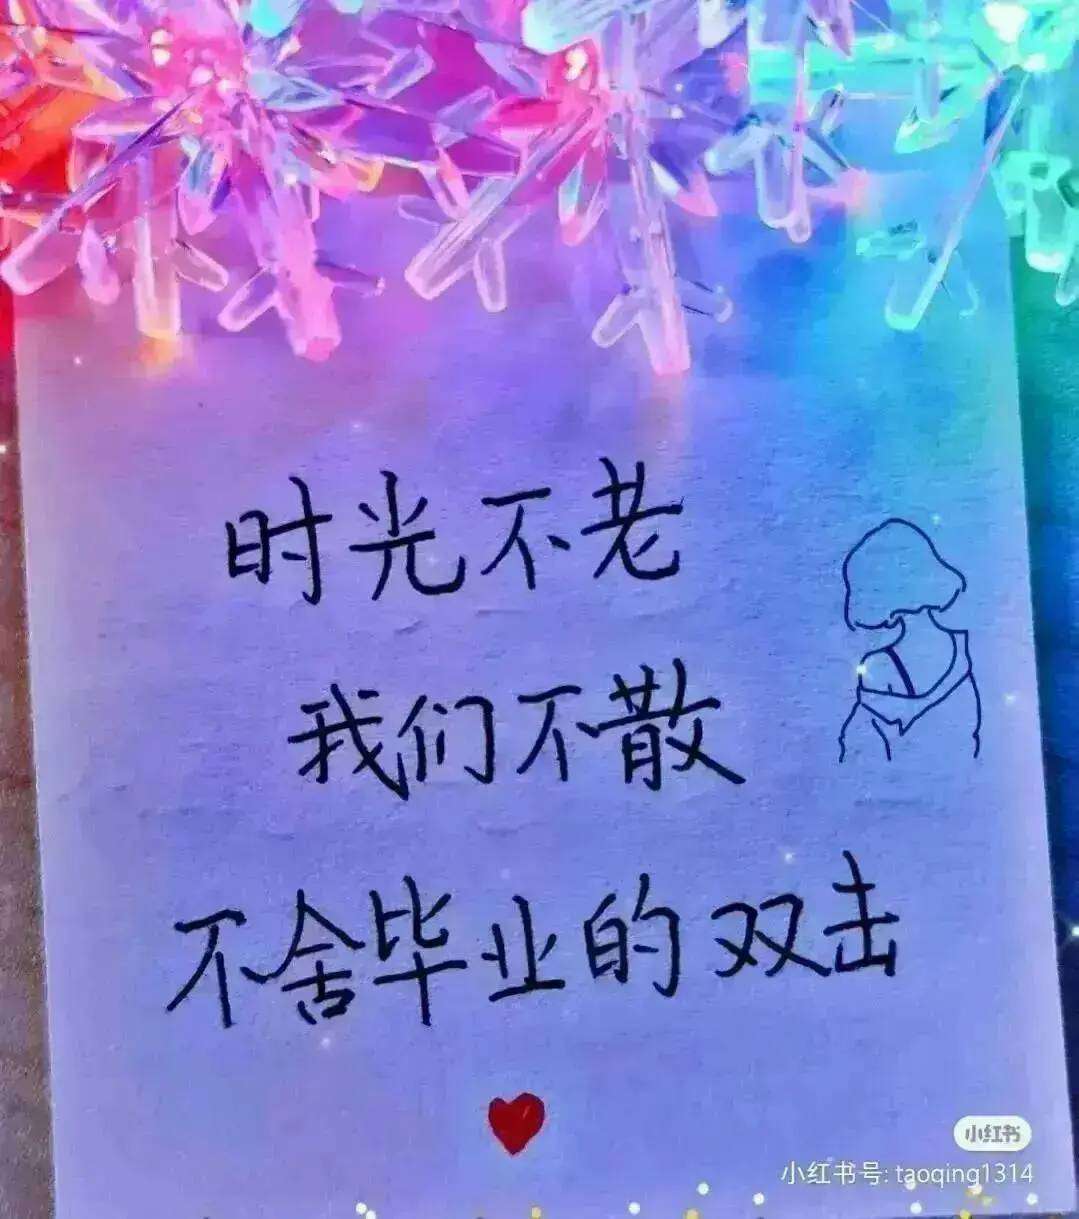 时光不老
我们不散
不舍毕业的双击
小红书
小红书号: taoqing1314